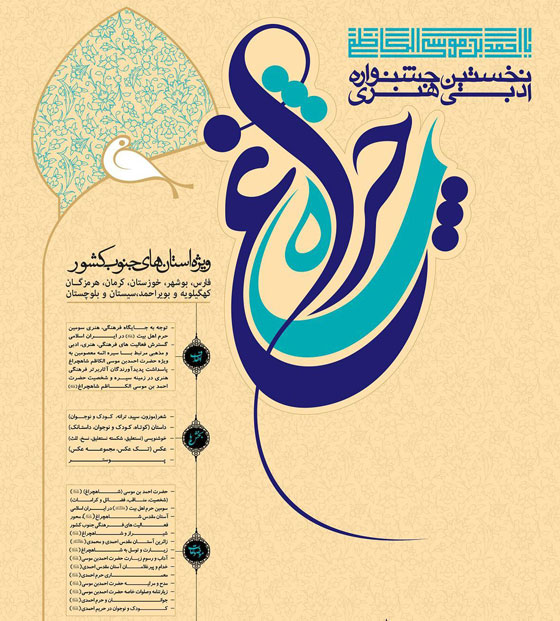 یا احمد بن موسی الکاظم
نخستین جشنواره
ادبی هنری
شاهچراغ
ویژه استان‌های جنوب کشور
فارس، بوشهر، خوزستان، کرمان، هرمزگان
کهگیلویه و بویراحمد،سیستان و بلوچستان
– توجه به جایگاه فرهنگی، هنری سومین
حرم اهل بیت (علیه) در ایران اسلامی
– گسترش فعالیت های فرهنگی، هنری، ادبی
و مذهبی مرتبط با سیره ائمه معصومین به
ویژه حضرت احمدبن موسی الکاظم شاهچراغ
– پاسداشت پدیدآورندگان آثاربرتر فرهنگی
هنری در زمینه سیره و شخصیت حضرت
احمد بن موسی الکاظم شاهچراغ
– شعر(موزون، سپید، ترانه، کودک و نوجوان)
– داستان (کوتاه، کودک و نوجوان، داستانک)
– خوشنویسی (نستعلیق، شکسته نستعلیق، نسخ، ثلث)
– عکس (تک عکس، مجموعه عکس)
– پوستر
– حضرت احمد بن موسی (شاهچراغ)
(شخصیت، مناقب، فضائل و کرامات)
– سومین حرم اهل بیت در ایران اسلامی
– آستان مقدس شاهچراغ محور
فعالیت های فرهنگی جنوب کشور
– شیراز و شاهچراغ
– زائرین آستان مقدس احمدی و محمدی
– زیارت و توسل به شاهچراغ
– آداب و رسوم زیارت حضرت احمدبن موسی
– خدام و پیرغلامان آستان مقدس احمدی
– معماری حرم احمدی
– مدح و مرثیه حضرت احمدبن موسی
– زیارتنامه وصلوات خاصه حضرت احمدبن موسی
– جوانان و حرم احمدی
– کودک و نوجوان در حریم احمدی